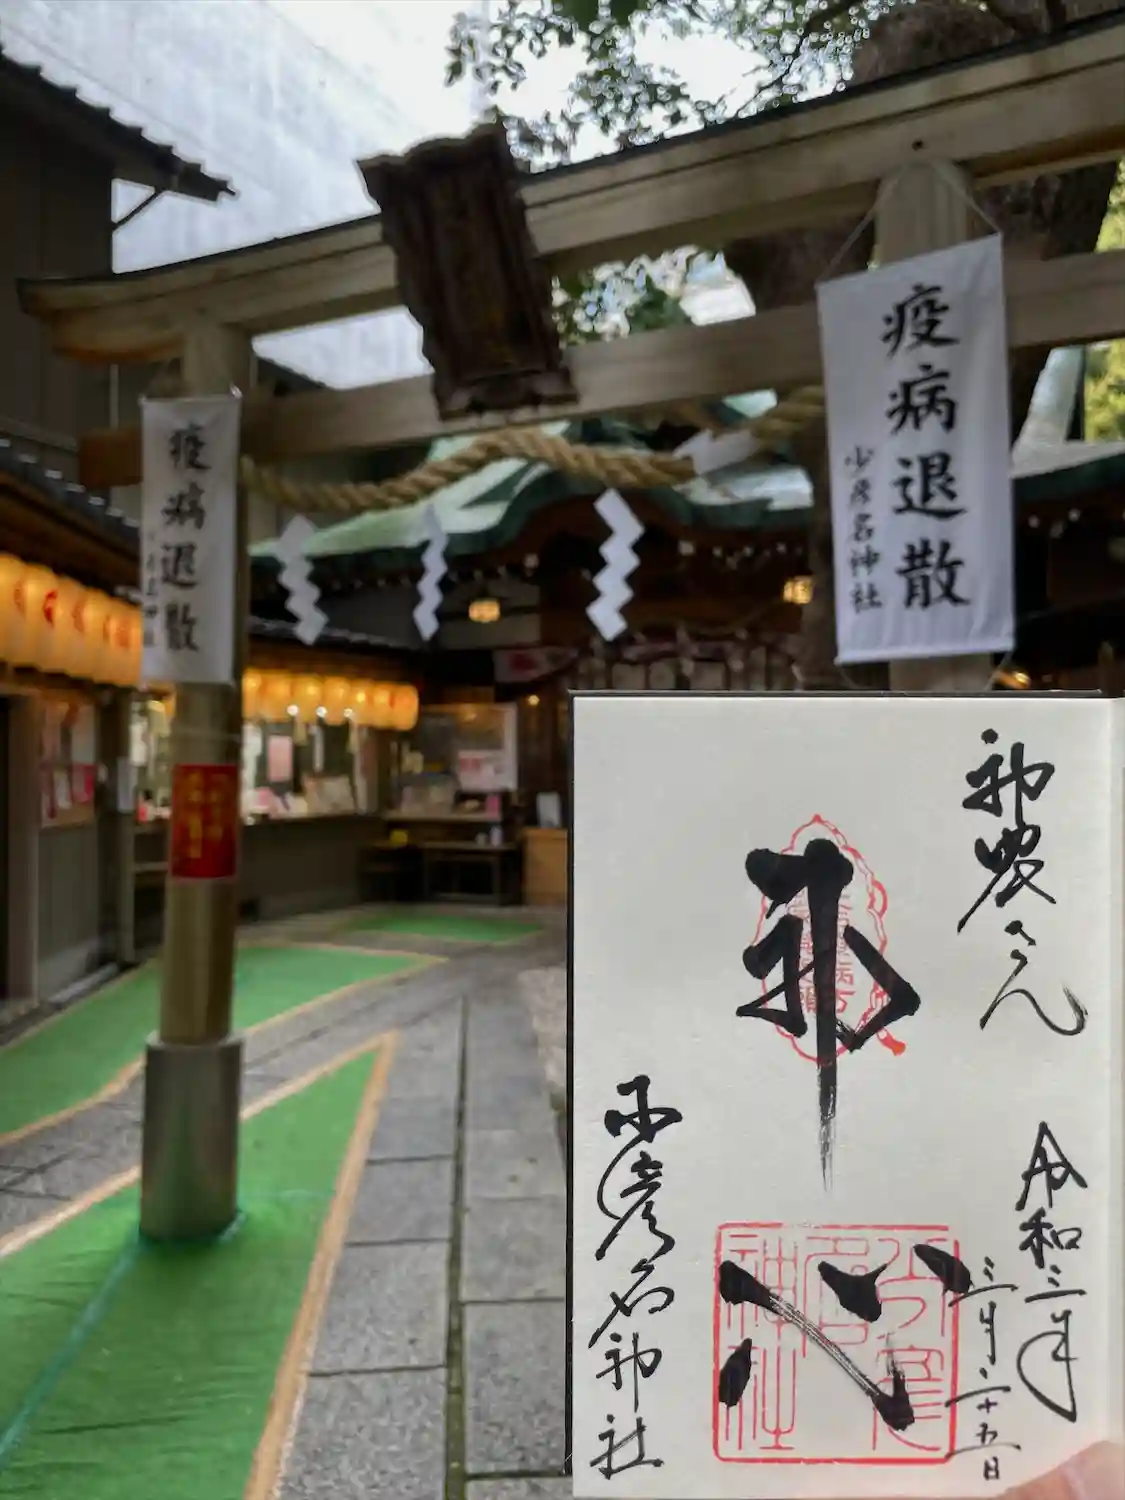 疫病退散
少彦名神社
疫病退散
神農さん
神心
少彦名神社
令和三年
三月二十五日
少彦名神社